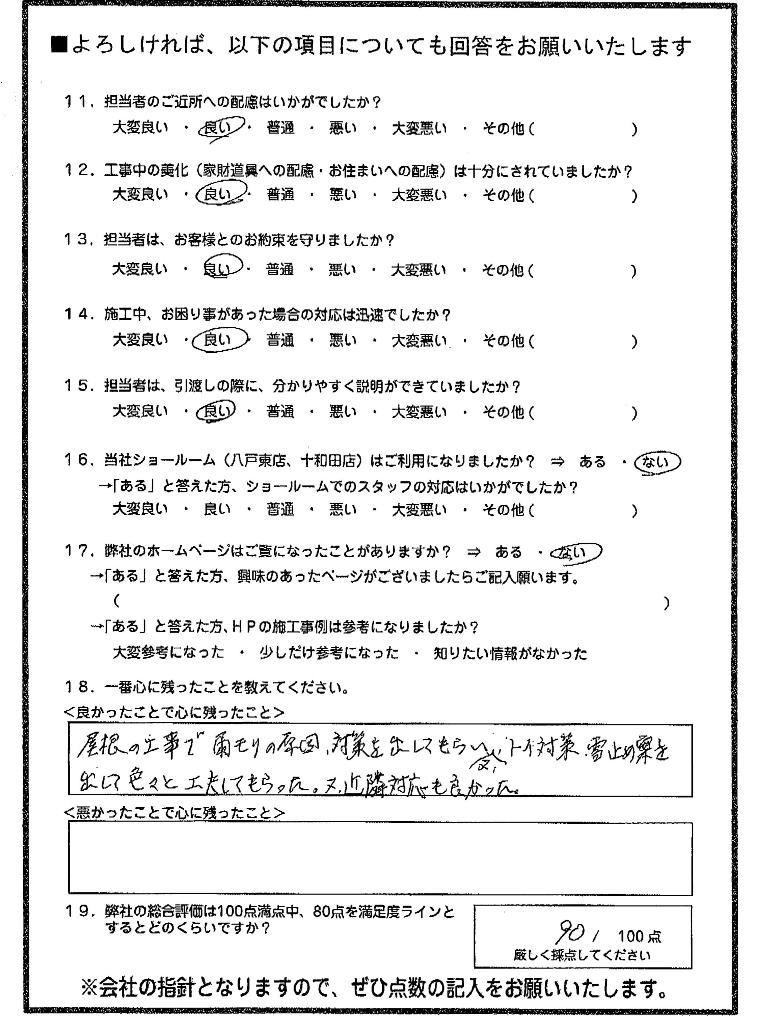 ■よろしければ、以下の項目についても回答をお願いいたします
11．担当者のご近所への配慮はいかがでしたか？
大変良い ・ 良い ・ 普通 ・ 悪い ・ 大変悪い ・ その他（　　　　　　）
12．工事中の美化（家財道具への配慮・お住まいへの配慮）は十分にされていましたか？
大変良い ・ 良い ・ 普通 ・ 悪い ・ 大変悪い ・ その他（　　　　　　）
13．担当者は、お客様とのお約束を守りましたか？
大変良い ・ 良い ・ 普通 ・ 悪い ・ 大変悪い ・ その他（　　　　　　）
14．施工中、お困り事があった場合の対応は迅速でしたか？
大変良い ・ 良い ・ 普通 ・ 悪い ・ 大変悪い ・ その他（　　　　　　）
15．担当者は、引渡しの際に、分かりやすく説明ができていましたか？
大変良い ・ 良い ・ 普通 ・ 悪い ・ 大変悪い ・ その他（　　　　　　）
16．当社ショールーム（八戸東店、十和田店）はご利用になりましたか？ ⇒ ある ・ ない
→「ある」と答えた方、ショールームでのスタッフの対応はいかがでしたか？
大変良い ・ 良い ・ 普通 ・ 悪い ・ 大変悪い ・ その他（　　　　　　）
17．弊社のホームページはご覧になったことがありますか？ ⇒ ある ・ ない
→「ある」と答えた方、興味のあったページがございましたらご記入願います。
（　　　　　　）
→「ある」と答えた方、HPの施工事例は参考になりましたか？
大変参考になった ・ 少しだけ参考になった ・ 知りたい情報がなかった
18．一番心に残ったことを教えてください。
＜良かったことで心に残ったこと＞
屋根の工事で雨モリの原因、対策を出してもらい、又、トイ対策、雪止め案を
出して色々と工夫してもらった。又、近隣対応も良かった。
＜悪かったことで心に残ったこと＞
19．弊社の総合評価は100点満点中、80点を満足度ラインと
するとどのくらいですか？
90 / 100点
厳しく採点してください
※会社の指針となりますので、ぜひ点数の記入をお願いいたします。